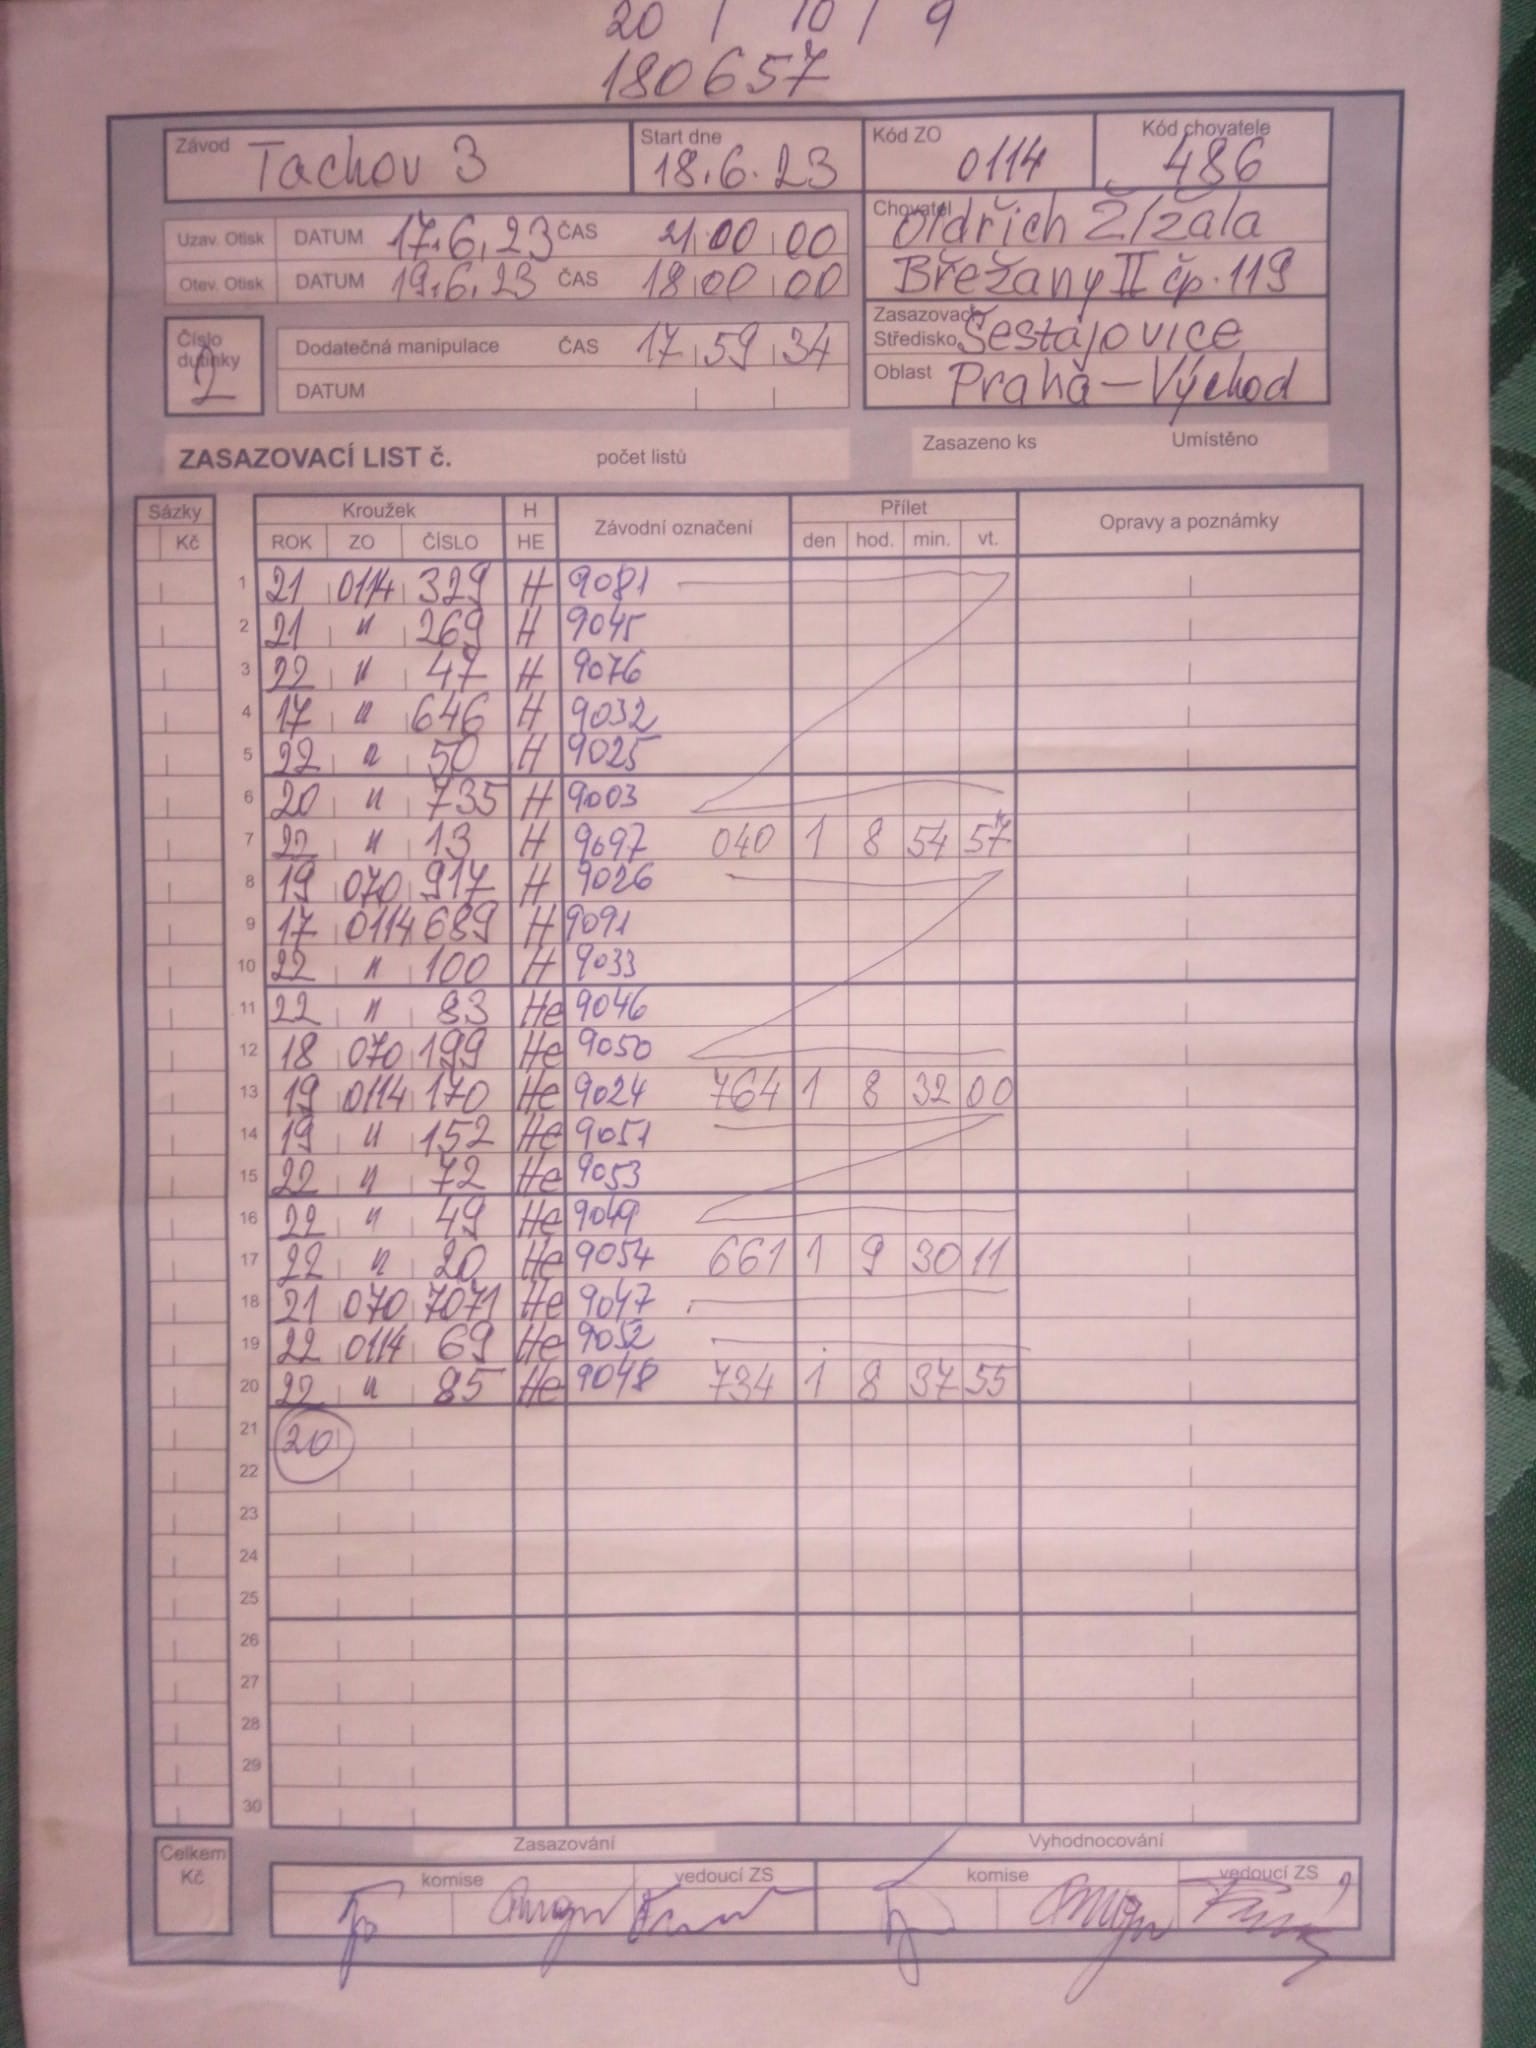 20 / 10 / 9
180657
Závod Tachov 3 Start dne 18.6.23 Kód ZO 0114 Kód chovatele 486
Chovatel Oldřich Zížala
Uzav. Otisk DATUM 17.6.23 ČAS 21 00 00
Břežany II čp. 119
Otev. Otisk DATUM 19.6.23 ČAS 18 00 00
Číslo dutinky 2 Dodatečná manipulace ČAS 17 59 34
Zasazovací Středisko Šestajovice
DATUM
Oblast Praha – Východ
ZASAZOVACÍ LIST č. počet listů Zasazeno ks Umístěno
Sázky Kroužek H Závodní označení Přílet Opravy a poznámky
Kč ROK ZO ČÍSLO HE den hod. min. vt.
1 21 0114 329 H 9081
2 21 " 269 H 9045
3 22 " 47 H 9076
4 17 " 646 H 9032
5 22 " 50 H 9025
6 20 " 735 H 9003
7 22 " 13 H 9097 040 1 8 54 57
8 19 070 917 H 9026
9 17 0114 689 H 9091
10 22 " 100 H 9033
11 22 " 83 He 9046
12 18 070 199 He 9050
13 19 0114 170 He 9024 764 1 8 32 00
14 19 " 152 He 9051
15 22 " 72 He 9053
16 22 " 49 He 9049
17 22 " 20 He 9054 661 1 9 30 11
18 21 070 7071 He 9047
19 22 0114 69 He 9052
20 22 " 85 He 9048 734 1 8 37 55
21 20
22
23
24
25
26
27
28
29
30
Celkem Kč Zasazování Vyhodnocování
komise vedoucí ZS komise vedoucí ZS